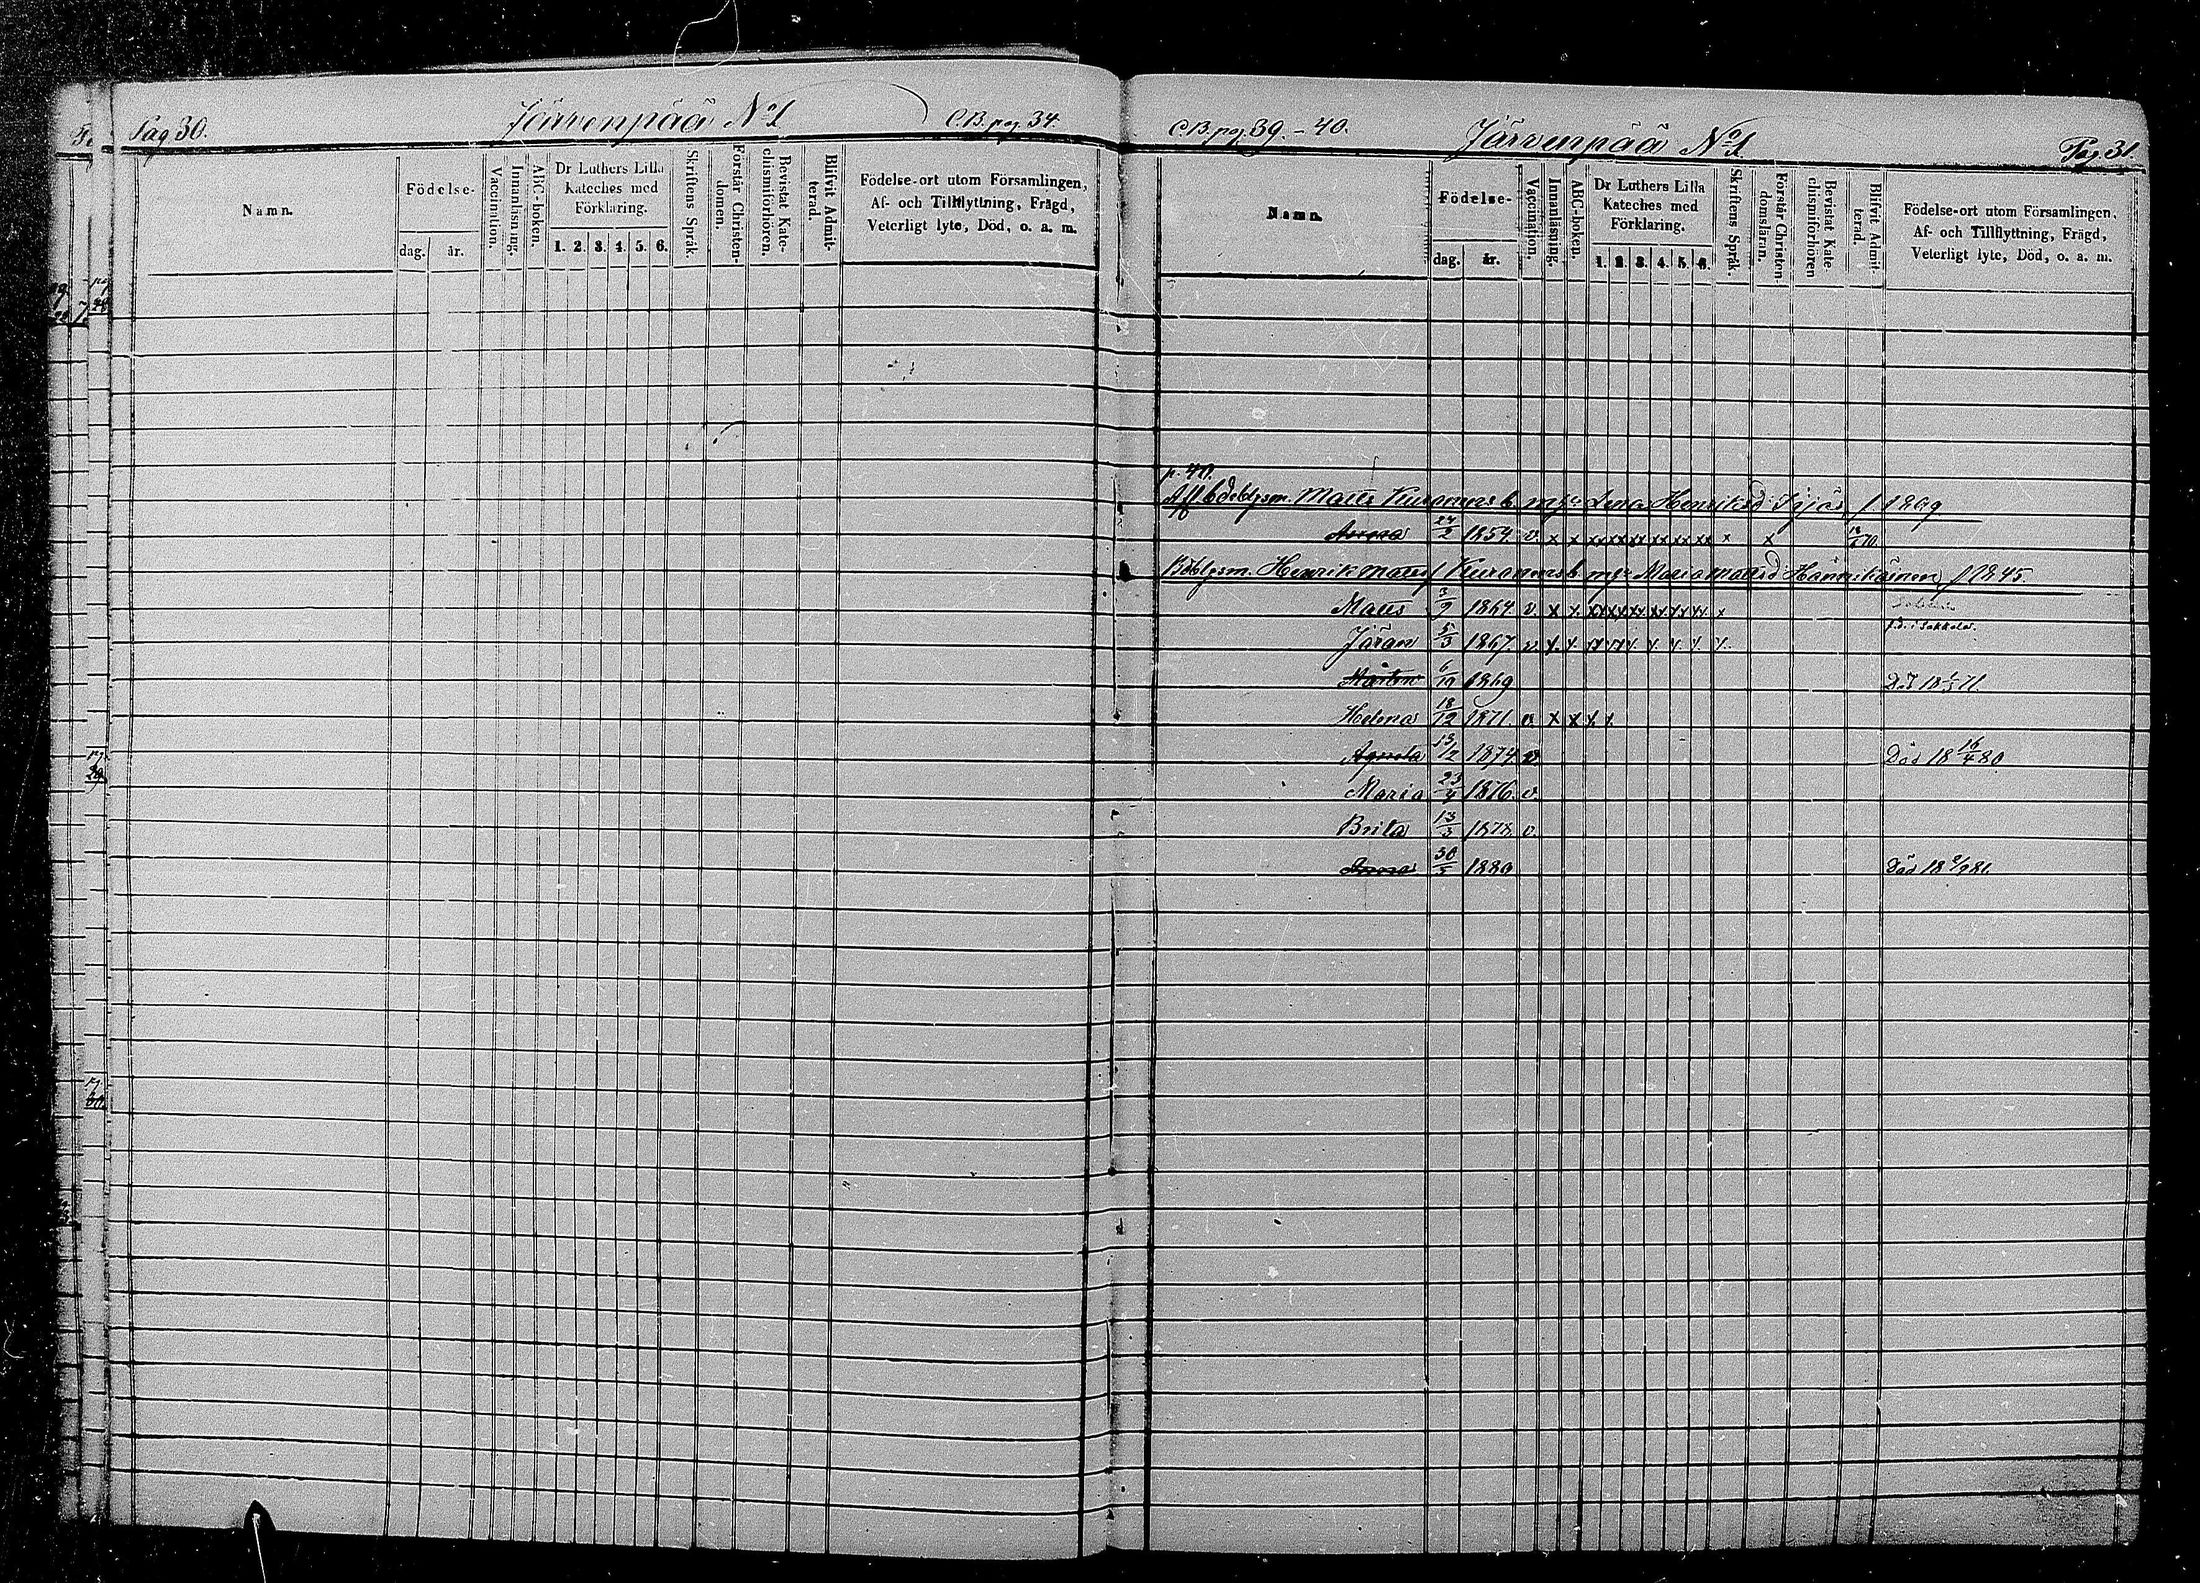 Pag 30. Järvenpää No 1 C.B. pag. 34.
Namn.
Födelse-
dag. år.
Vaccination.
Innanläsning.
ABC-boken.
Dr Luthers Lilla
Kateches med
Förklaring.
1. 2. 3. 4. 5. 6.
Skriftens Språk.
Förstår Christen-
domen.
Bevistat Kate-
chismiförhören.
Blifvit Admit-
terad.
Födelse-ort utom Församlingen,
Af- och Tillflyttning, Frägd,
Veterligt lyte, Död, o. a. m.
C.B. pag. 39.-40. Järvenpää No 1 Pag. 31
Namn.
Födelse-
dag. år.
Vaccination.
Innanläsning.
ABC-boken.
Dr Luthers Lilla
Kateches med
Förklaring.
1. 2. 3. 4. 5. 6.
Skriftens Språk.
Förstår Christen-
domsläran.
Bevistat Kate
chismiförhören
Blifvit Admit-
terad.
Födelse-ort utom Församlingen,
Af- och Tillflyttning, Frägd,
Veterligt lyte, Död, o. a. m.
p. 40.
Matts Lena Henriksd
24/2 1854 v. x x xx xx xx xx xx xx x x
Henrik Mattsf Maria Mattsd Hännikäinen f 1845.
Matts 3/9 1864 v. x x. xx xx xx xx xx xx. x
f.d. i Sakkola.
Jöran 5/3 1867. v. x. x. xx xx x. x. x. x. x.
Mårten 6/10 1869
Helena 18/12 1871. v. x x x. x.
Agneta 13/12 1874. v. Död 18 16/4 80
Maria 23/4 1876. v.
Brita 13/3 1878. v.
30/5 1880 Död 18 8/9 81.